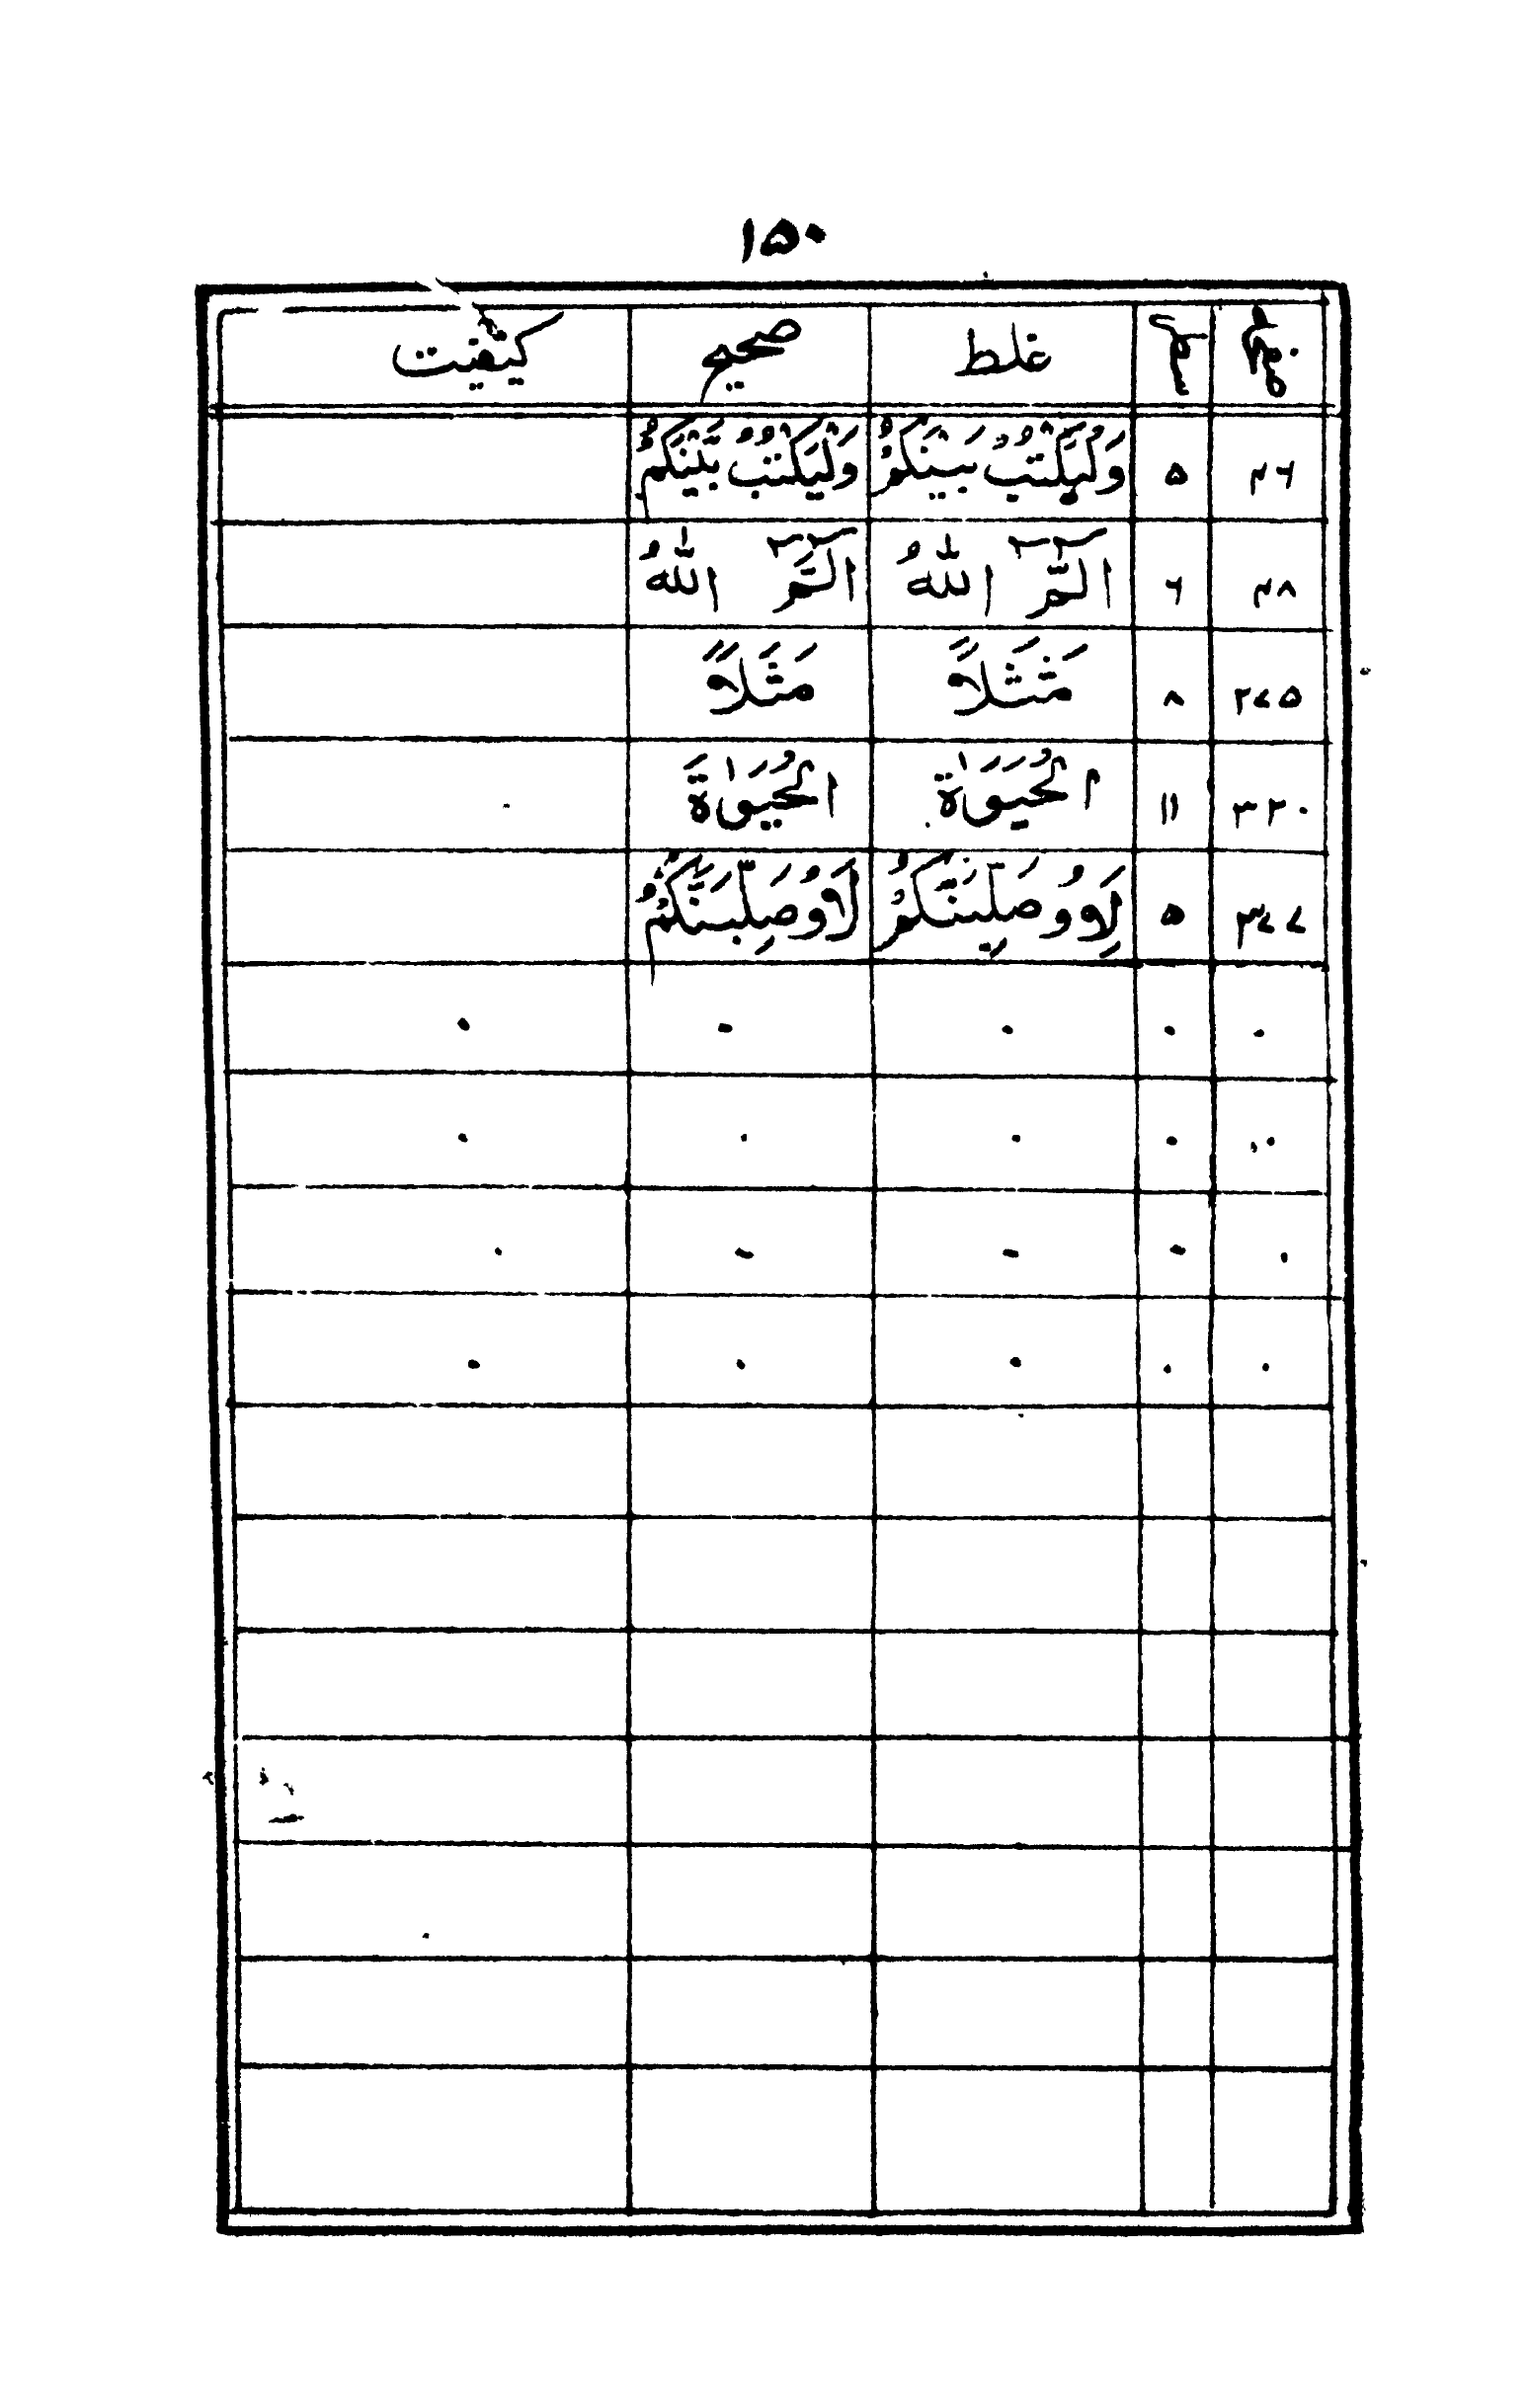 ۱۵۰
صفحہ سطر غلط صحیح کیفیت
۴۶ ۵ وَلْيَكْتُبْ بَيْنَكُمْ وَلْيَكْتُبْ بَّيْنَكُمْ
۴۸ ۶ الٓمّٓ اللّٰهُ الٓمَّٓ اللّٰهُ
۲۷۵ ۸ مَثَلًا مَثَلًا
۳۲۰ ۱۱ الْحُيَوٰةَ الْحُيَوٰةَ
۳۷۷ ۵ لَاُوصَلِّيَنَّكُمْ لَاُوصَلِّبَنَّكُمْ